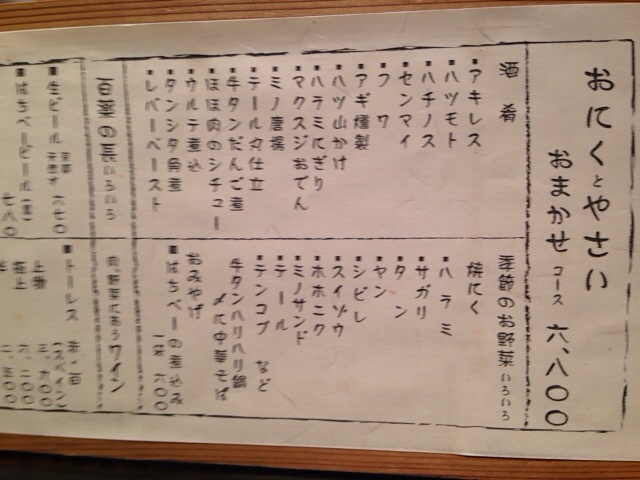 おにくとやさい
おまかせコース 六、八〇〇
酒肴
▪アキレス
▪ハツモト
▪ハチノス
▪センマイ
▪フワ
▪アギ燻製
▪ハツ山かけ
▪ハラミにぎり
▪マクスジおでん
▪ミノ唐揚
▪テール丸仕立
▪牛タンだんご煮
▪ほほ肉のシチュー
▪ウルテ煮込
▪タンシタ角煮
▪レバーペースト
季節のお野菜いろいろ
焼にく
▪ハラミ
▪サガリ
▪タン
▪ヤン
▪シビレ
▪スイゾウ
▪ホホニク
▪ミノサンド
▪テール
▪テンコブ など
牛タンハリハリ鍋
〆に中華そば
おみやげ
▪はちべーの煮込み
一袋 六〇〇
百薬の長いろいろ
▪生ビール 六七〇
▪はちべービール
七八〇
肉、野菜にあうワイン
▪トーレス 赤・白
(スペイン)
上物 三、九〇〇
極上 六、二〇〇
二、五〇〇